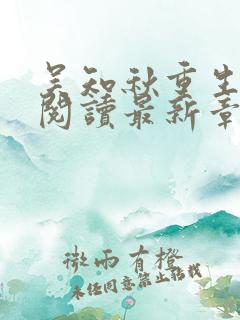 吴知秋重生
阅读最新章
微雨有橙
未经同意禁止转载